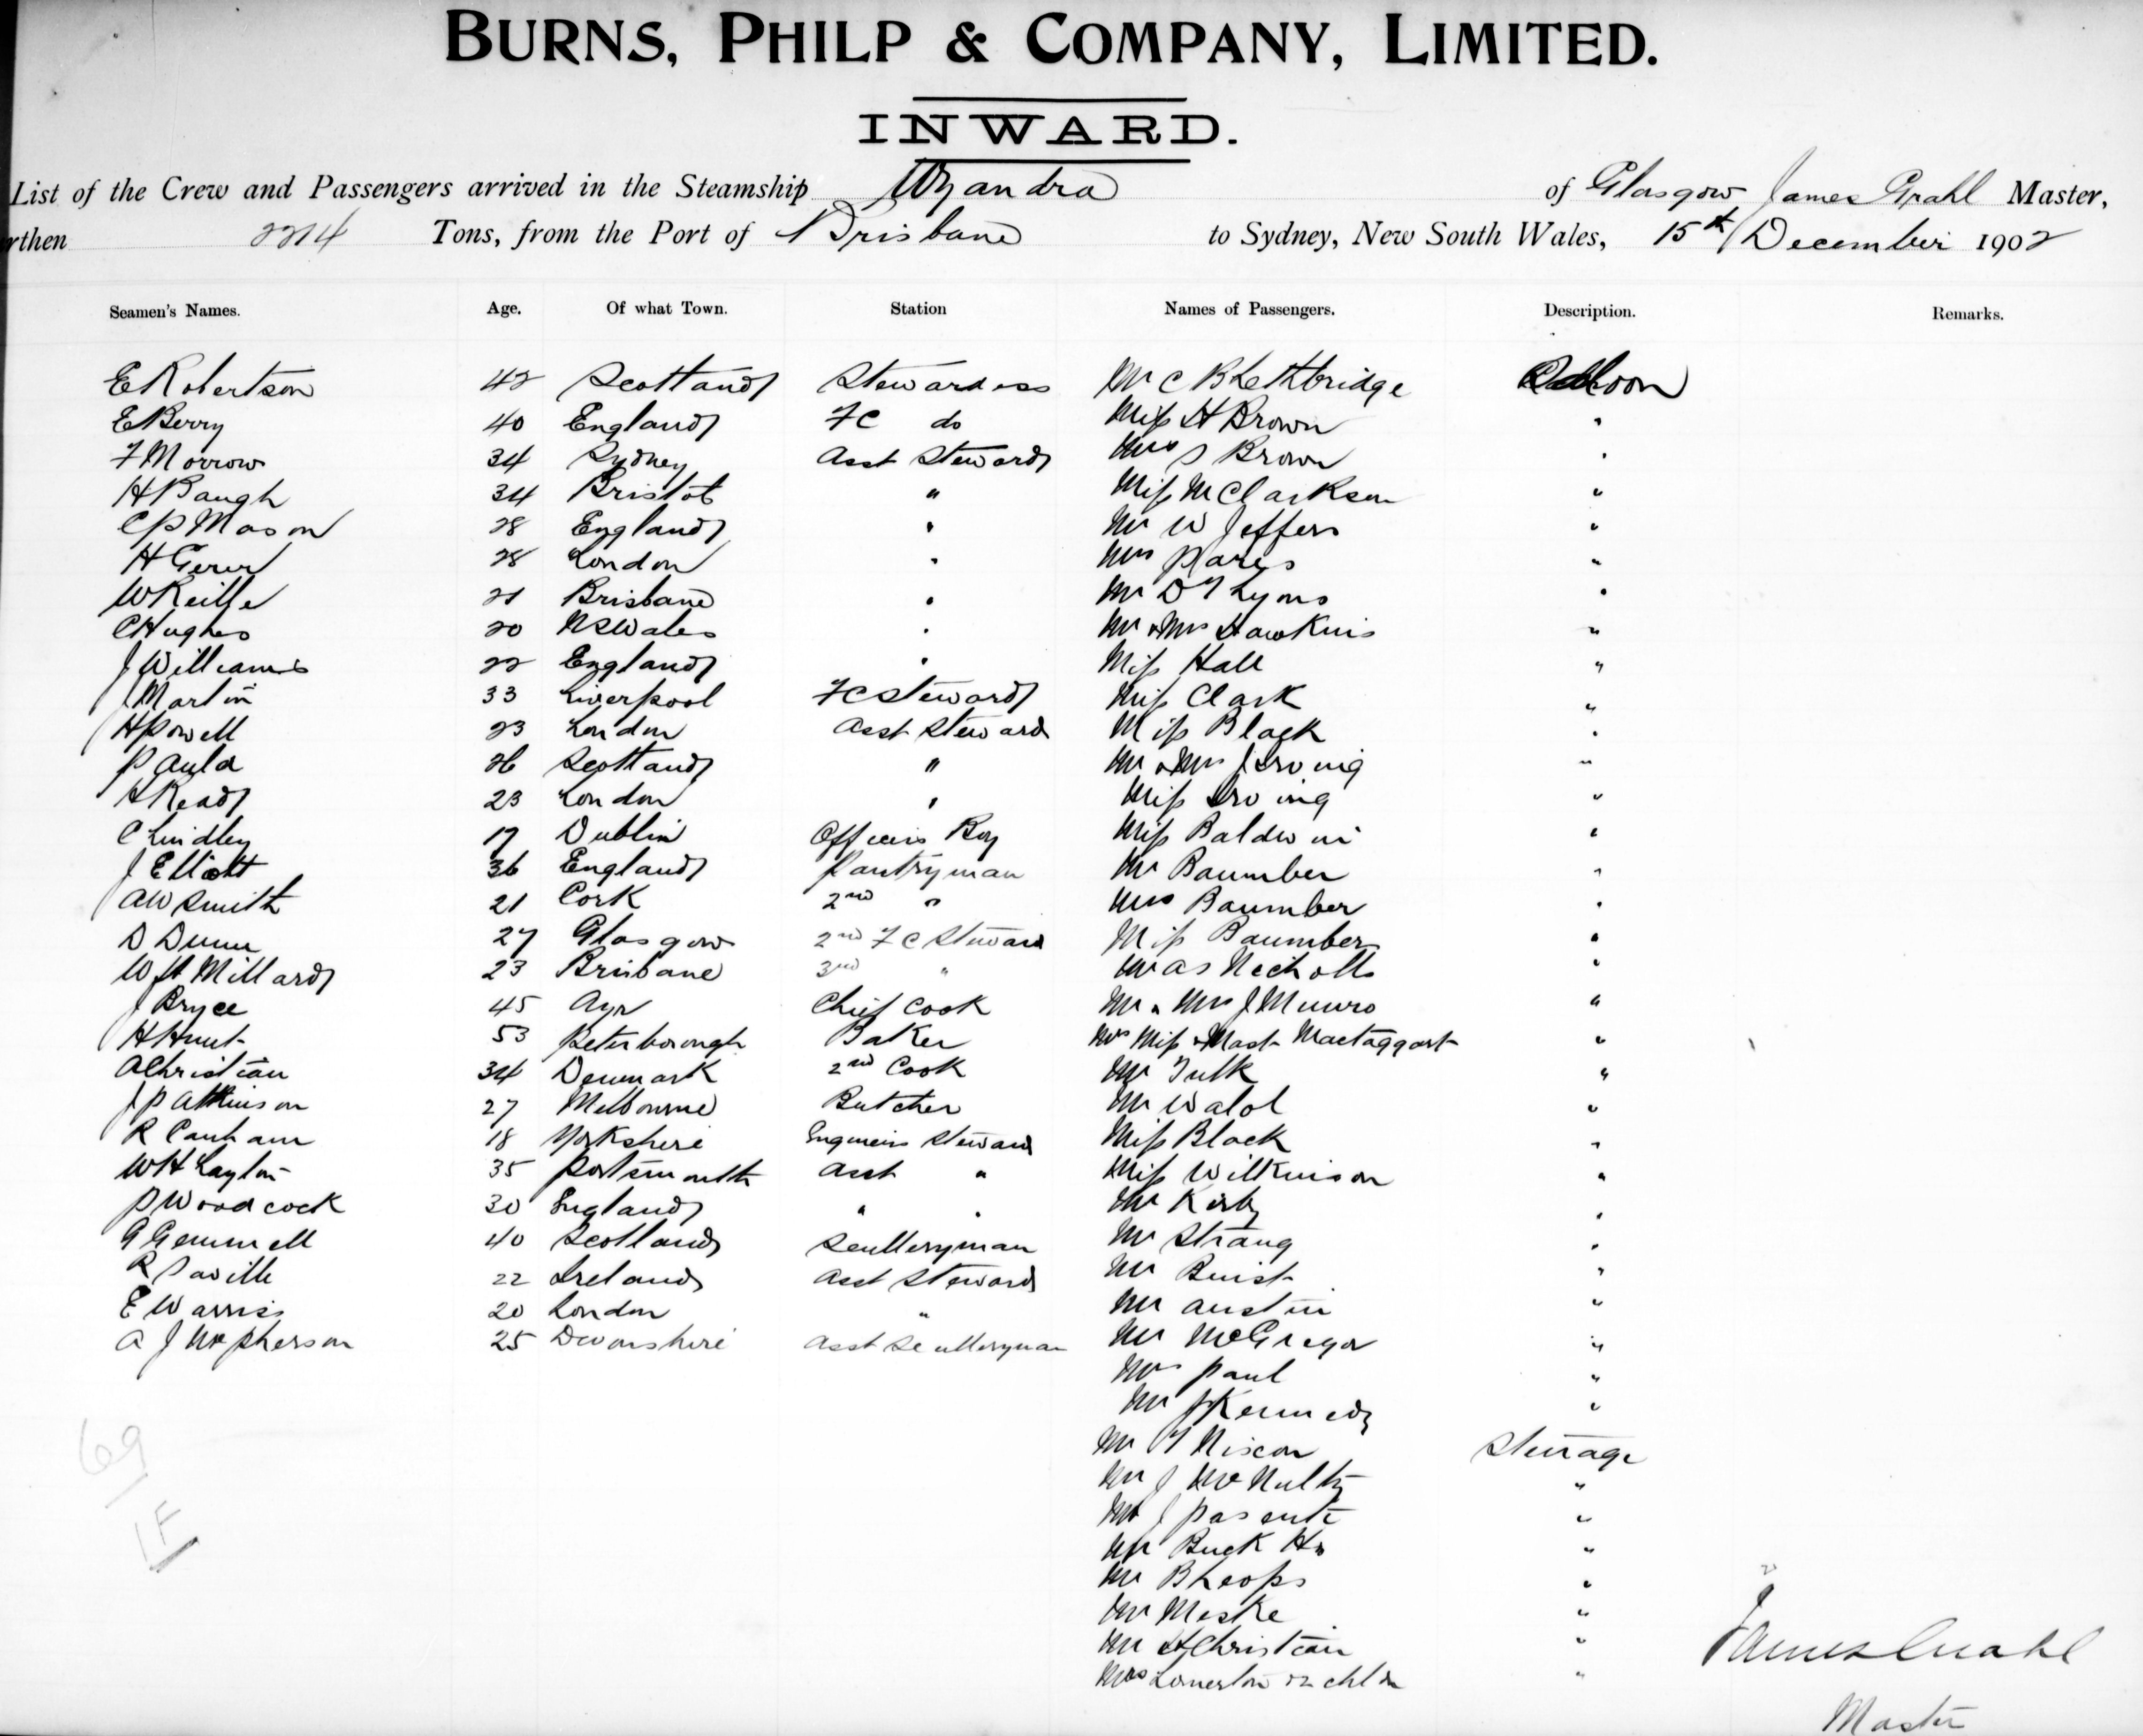 BURNS, PHILP & COMPANY, LIMITED.
INWARD.
List of the Crew and Passengers arrived in the Steamship Wyandra of Glasgow James Grahl Master,
rthen 2214 Tons, from the Port of Brisbane to Sydney, New South Wales, 15th December 1902
Seamen's Names. Age. Of what Town. Station Names of Passengers. Description. Remarks.
E Robertson 42 Scotland Stewardess Mr C B Lethbridge Saloon
E Berry 40 England FC do Miss H Brown "
F Morrow 34 Sydney Asst Steward Mrs S Brown "
H Baugh 34 Bristol " Miss M Clarkson "
C P Mason 28 England " Mr W Jeffers "
H 28 London " Mrs "
W 21 Brisbane " Mr D T Lyons "
C Hughes 20 N S Wales " Mr & Mrs Hawkins "
J Williams 22 England " Miss Hall "
J Martin 33 Liverpool FC Steward Miss Clark "
H Powell 23 London Asst Steward Miss Black "
P Auld 26 Scotland " Mr & Mrs J Irving "
H Read 23 London " Miss Irving "
C Lindley 17 Dublin Officers Boy Miss Baldwin "
J Elliott 36 England Pantryman Mr Baumber "
A W Smith 21 Cork 2nd " Mrs Baumber "
D Dunn 27 Glasgow 2nd F C Steward Miss Baumber "
W H Millard 23 Brisbane 3rd " Mr A S Nicholls "
J Bryce 45 Ayr Chief Cook Mr & Mrs J Munro "
H Hunt 53 Peterborough Baker Mrs Miss & Mast Mactaggart "
A Christian 34 Denmark 2nd Cook Mr Tulk "
J P Atkinson 27 Melbourne Butcher Mr "
R Canham 18 Yorkshire Engineers Steward Miss Black "
W H Layton 35 Portsmouth Asst " Miss Wilkinson "
P Woodcock 30 England " " Mr Kirby "
G Gemmell 40 Scotland Sculleryman Mr Strang "
R Saville 22 Ireland Asst Steward Mr Buist "
E Warris 20 London " Mr Austin "
A J McPherson 25 Devonshire Asst Sculleryman Mr McGregor "
Mr Paul "
Mr J Kennedy "
Mr T Nixon Steerage
Mr J McNulty "
Mr J "
Mr Buck "
Mr B Heaps "
Mr Meske "
Mr H Christian "
Mrs & 2 chldn "
69
1F
James Grahl
Master